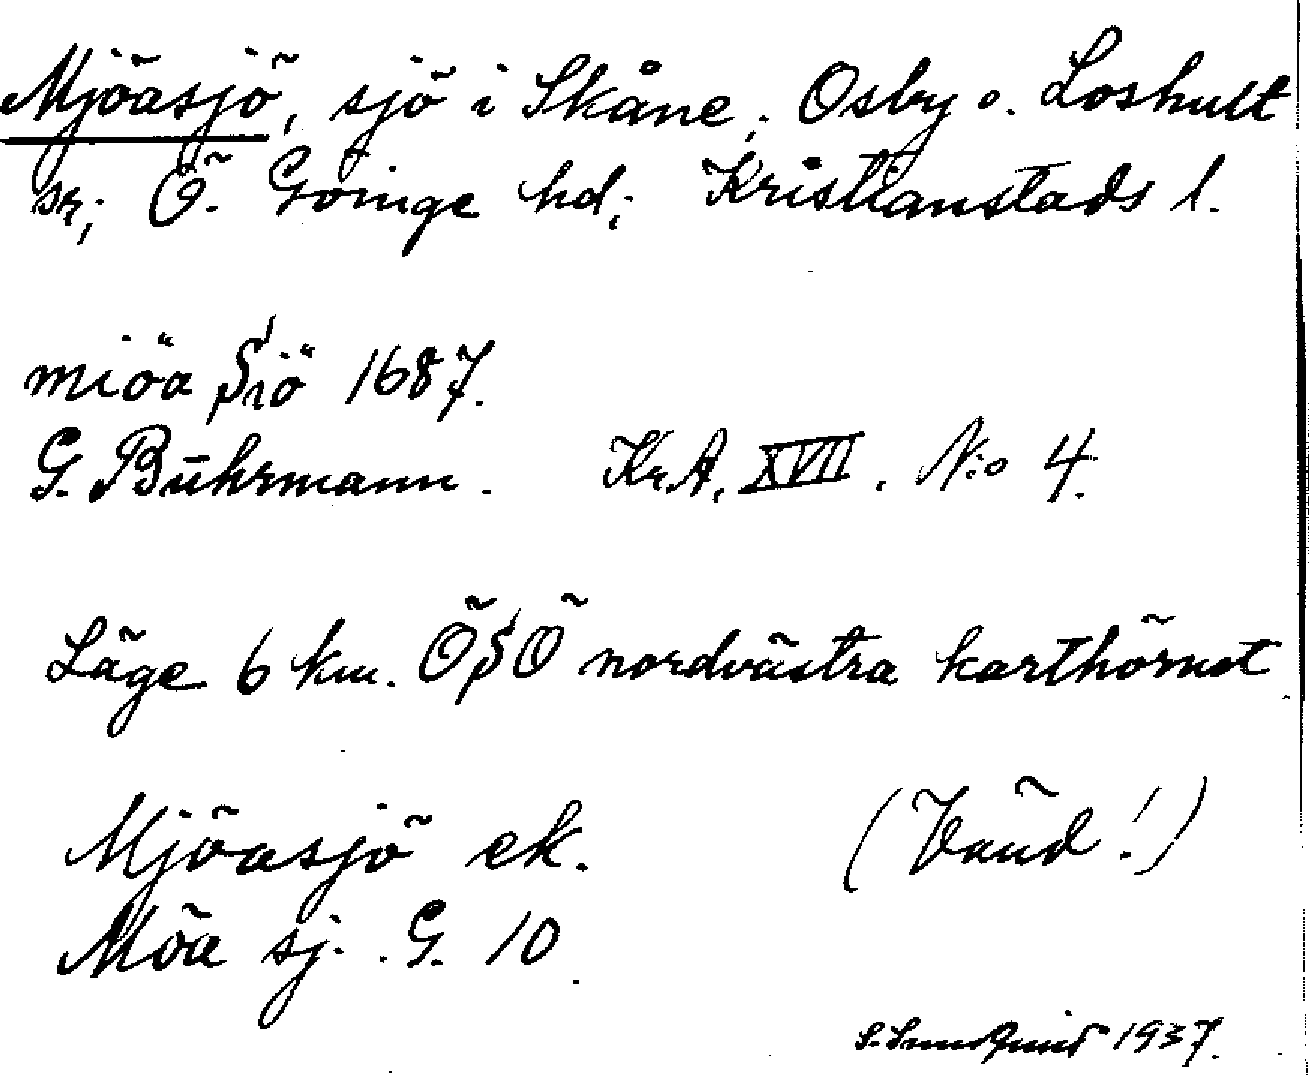 Mjöasjö, sjö i Skåne; Osby o. Loshult
sr; Ö. Göinge hd; Kristianstads l.
miöa Siö 1687.
G. Buhrmann. Kr.A. XVII. N:o 4.
Läge 6 km. ÖSÖ nordvästra karthörnet
Mjöasjö ek. (Vänd!)
Möa sj. G. 10
1937.